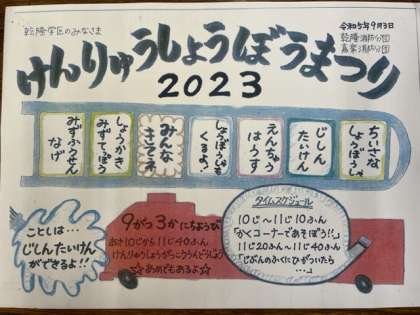 乾隆学区のみなさま
令和5年9月3日
乾隆消防分団
嘉楽消防分団
けんりゅうしょうぼうまつり
2023
みずふうせん
なげ
しょうかき
みずてっぽう
みんな
きてネ
しょうぼうしゃも
くるよ!
えんちゅう
はうす
じしん
たいけん
ちいさな
しょうぼうしゃ
ことしは…
じしんたいけん
ができるよ!!
9がつ3かにちようび
あさ10じから11じ40ふん
けんりゅうしょうがっこううんどうじょう
☆あめでもあるよ☆
タイムスケジュール
10じ〜11じ10ふん
「かくコーナーであそぼう!!」
11じ20ふん〜11じ40ふん
「じぶんのふくにひがついたら
…」